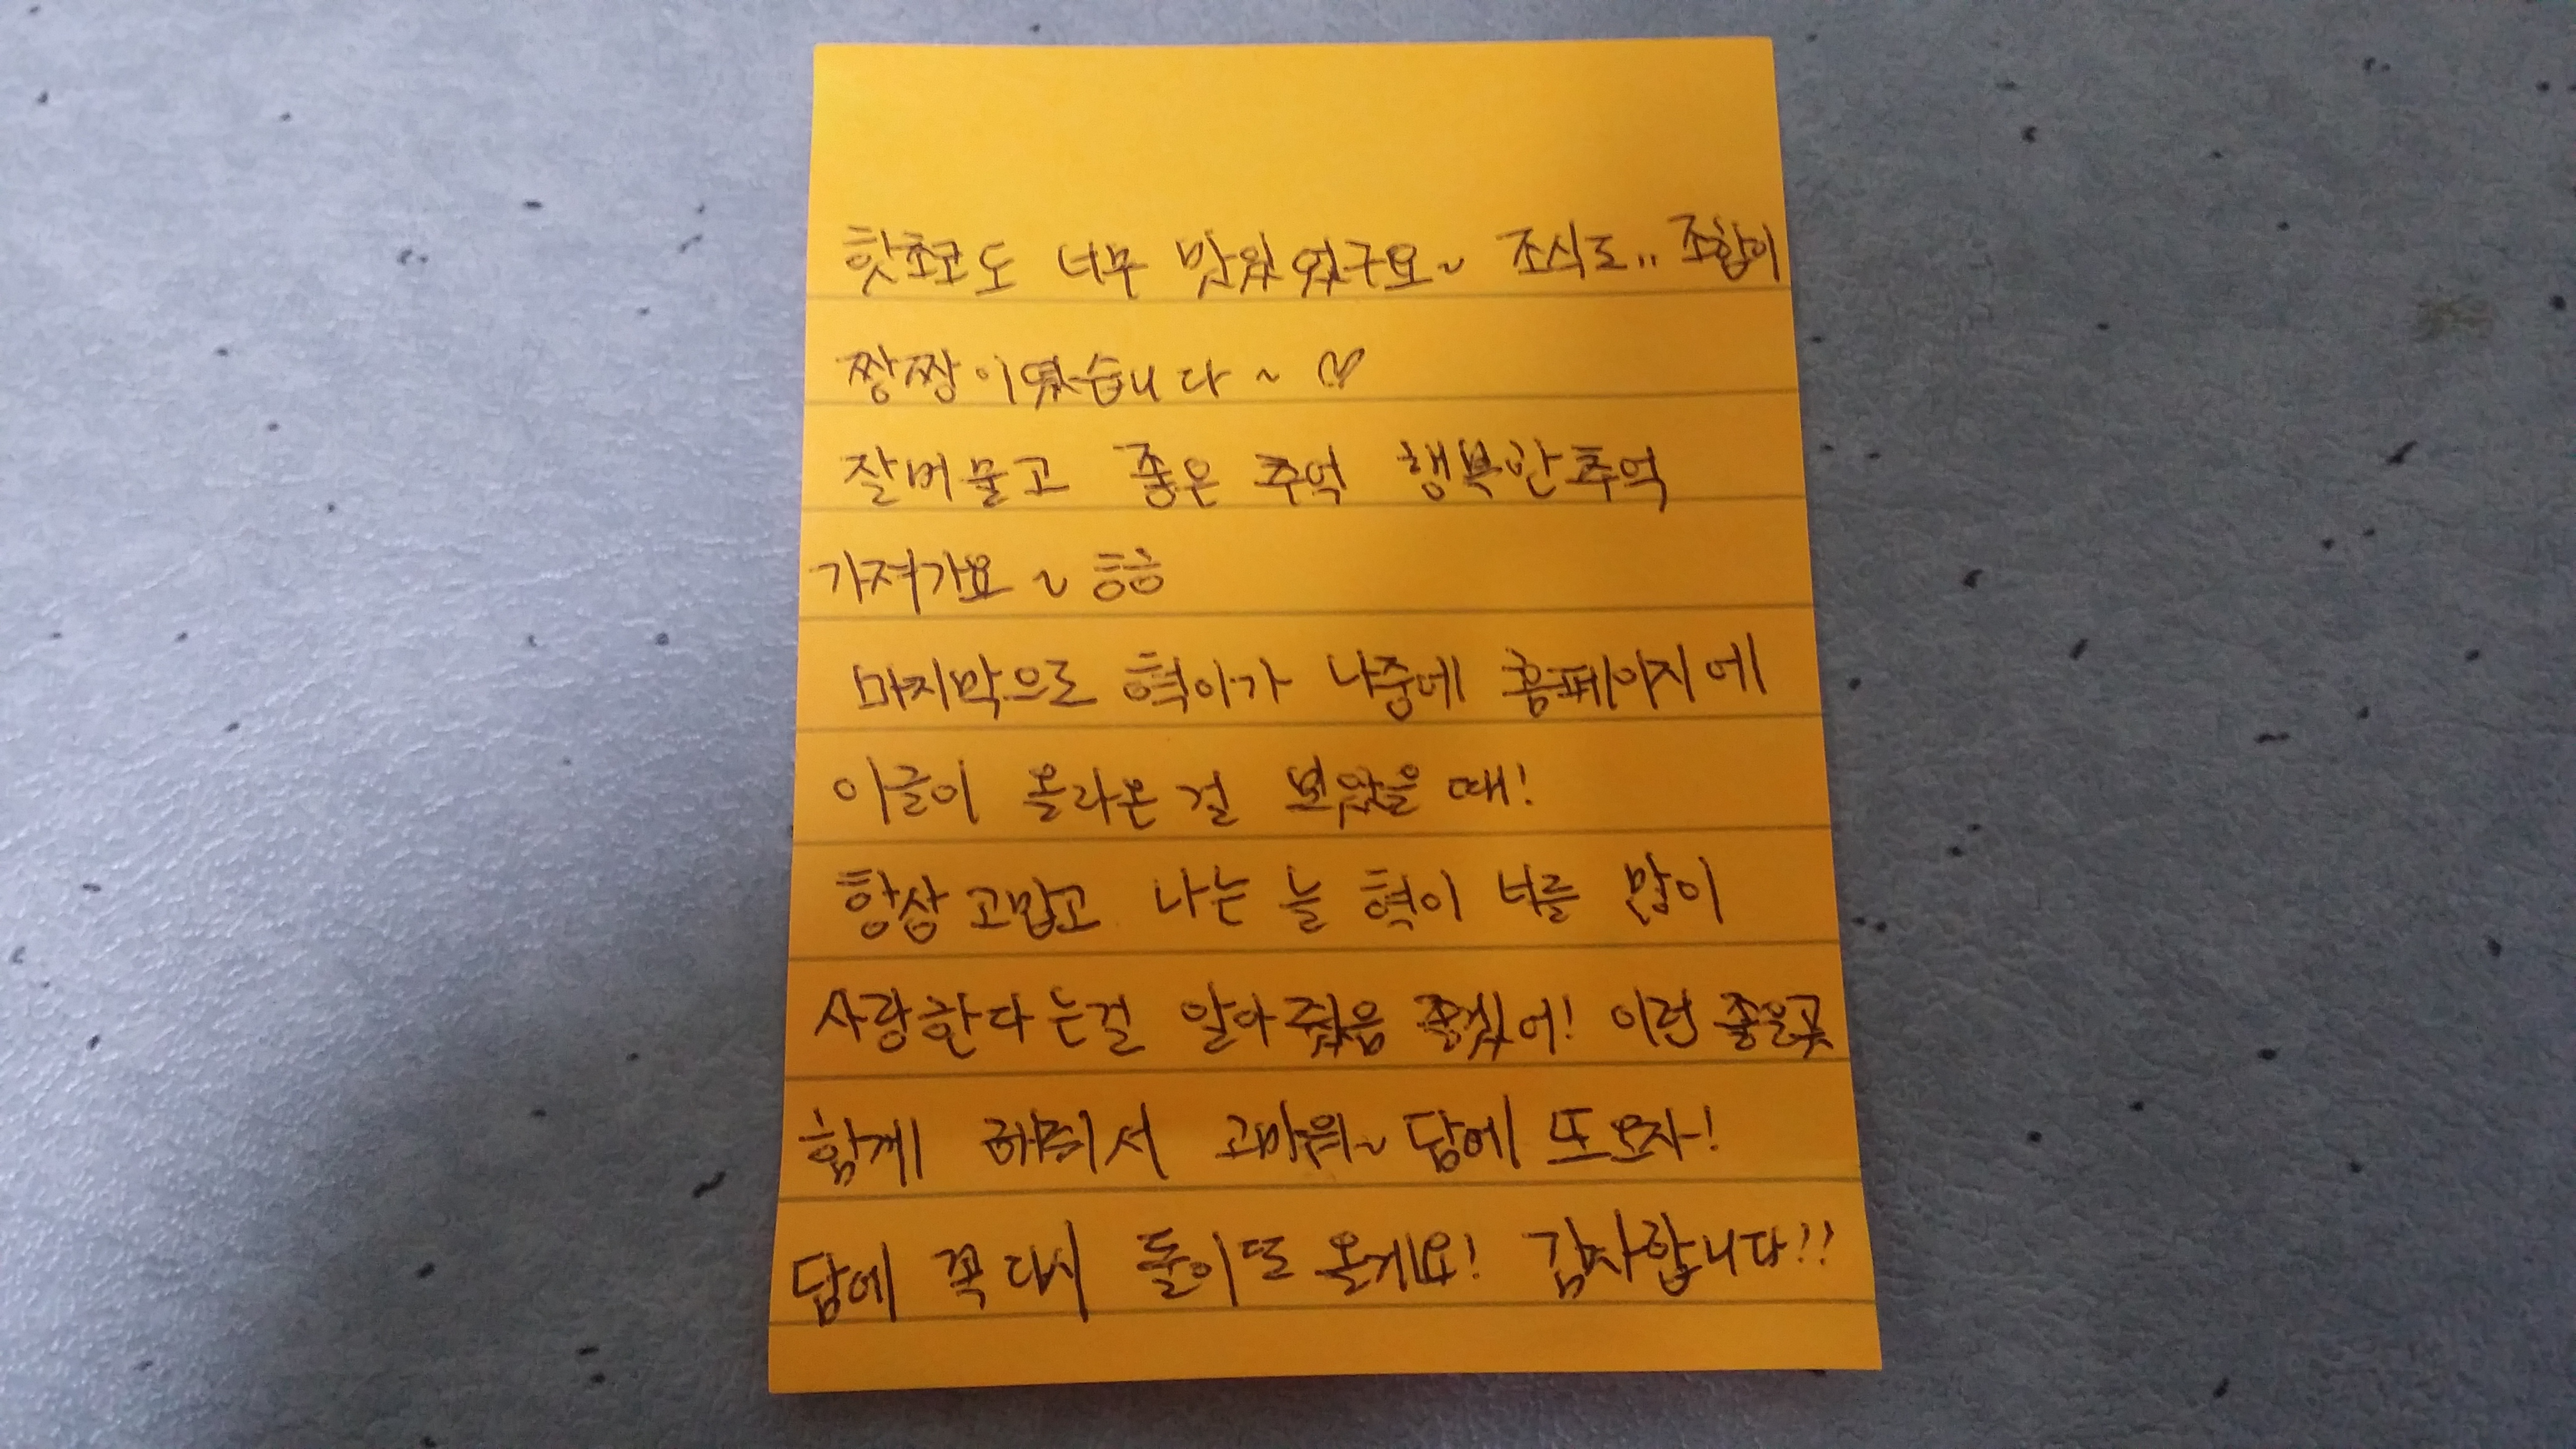 핫초코도 너무 맛있었구요~ 조식도.. 조합이
짱짱이였습니다~ ♡
잘머물고 좋은 추억 행복한추억
가져가요~ 흐흐
마지막으로 혁이가 나중에 홈페이지에
이글이 올라온걸 보았을 때!
항상 고맙고 나는 늘 혁이 너를 많이
사랑한다는걸 알아줬음 좋겠어! 이런 좋은곳
함께 해줘서 고마워~ 담에 또오자!
담에 꼭 다시 둘이또 올게요! 감사합니다!!